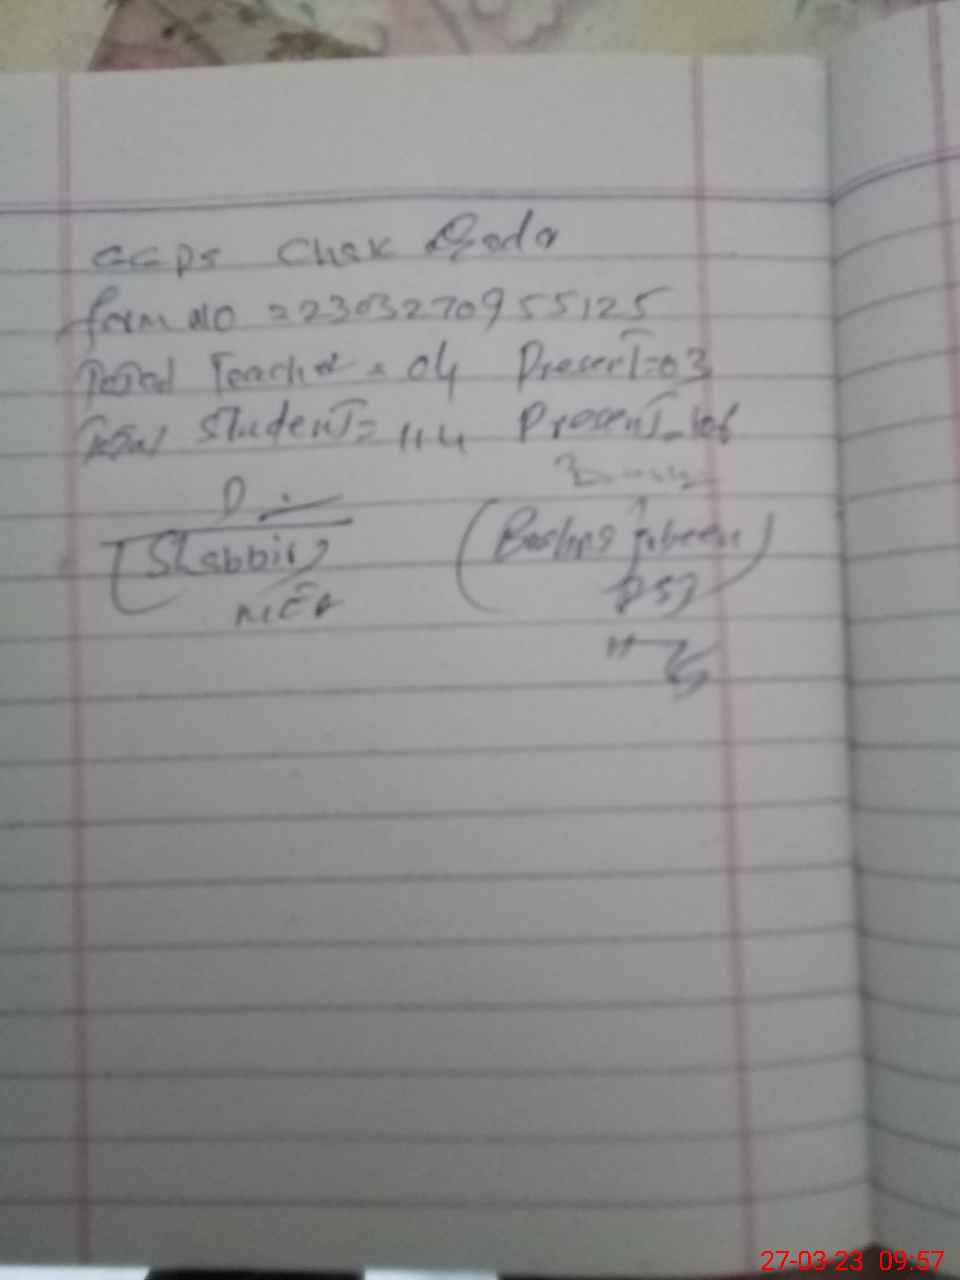 GGPS Chak
form NO 22303270955125
Total Teacher = 04 Present = 03
Total Student = 114 Present = 106
(Shabbir)
MEA
27-03-23 09:57